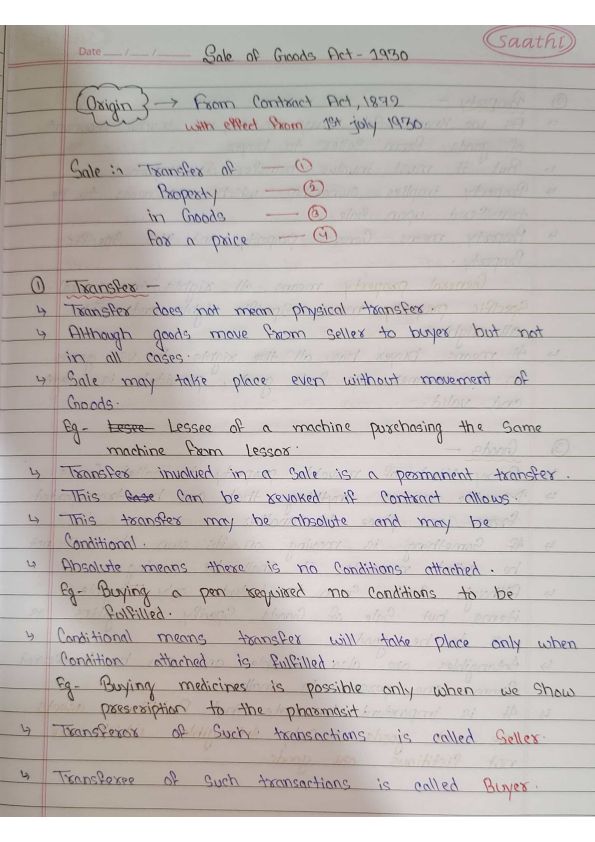 Saathi
Date ___/___/______
Sale of Goods Act - 1930
Origin → From Contract Act, 1872
with effect from 1st july 1930
Sale is Transfer of — ①
Property — ②
in Goods — ③
for a price — ④
① Transfer –
↳ Transfer does not mean physical transfer.
↳ Although goods move from seller to buyer but not
in all cases.
↳ Sale may take place even without movement of
Goods.
Eg- Lesee Lessee of a machine purchasing the same
machine from Lessor.
↳ Transfer involved in a Sale is a permanent transfer.
This Case Can be revoked if Contract allows.
↳ This transfer may be absolute and may be
Conditional.
↳ Absolute means there is no Conditions attached.
Eg- Buying a pen required no Conditions to be
fulfilled.
↳ Conditional means transfer will take place only when
Condition attached is fulfilled.
Eg- Buying medicines is possible only when we show
prescription to the pharmasit.
↳ Transferor of Such transactions is called Seller.
↳ Transferee of Such transactions is called Buyer.